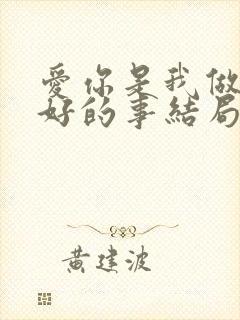 愛你是我做
好的事結局
黃建波